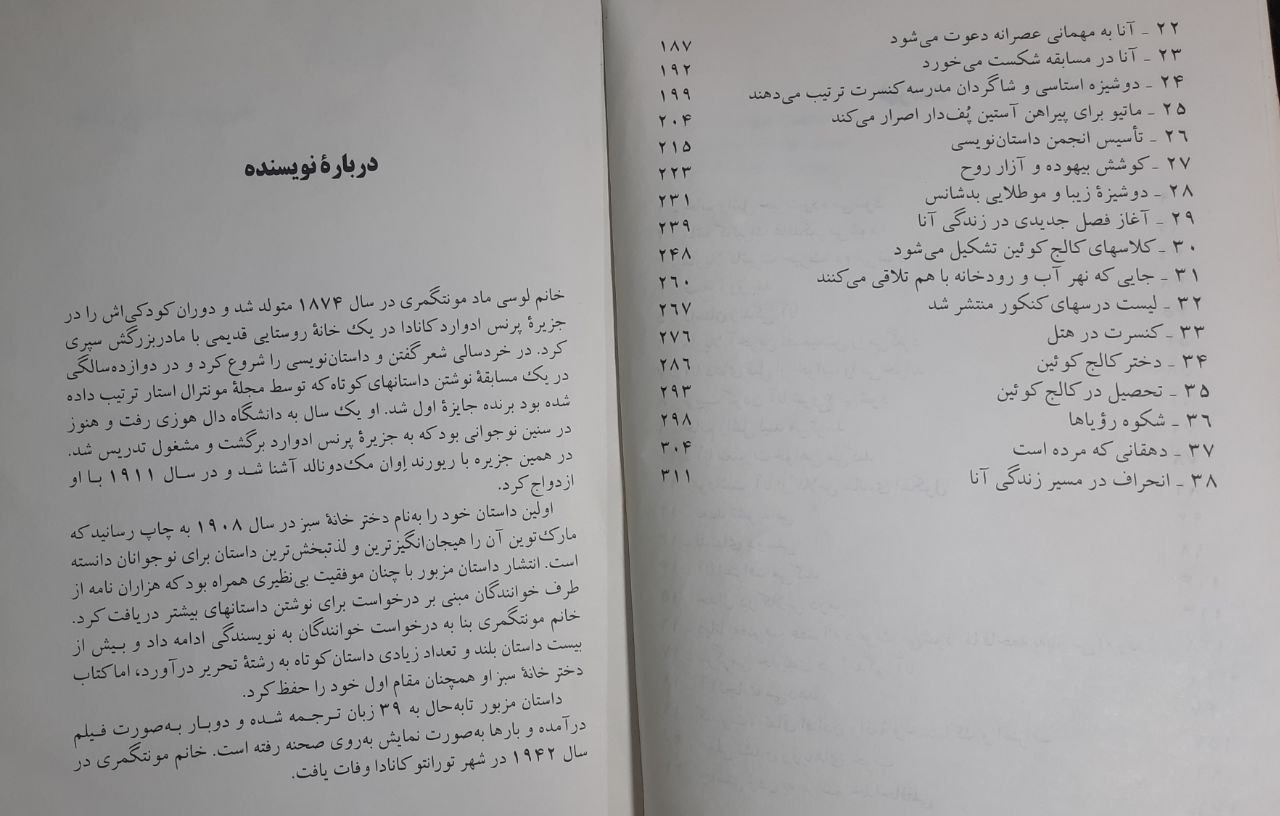 ۲۲ ـ آنا به مهمانی عصرانه دعوت می‌شود ۱۸۷
۲۳ ـ آنا در مسابقه شکست می‌خورد ۱۹۲
۲۴ ـ دوشیزه استاسی و شاگردان مدرسه کنسرت ترتیب می‌دهند ۱۹۹
۲۵ ـ ماتیو برای پیراهن آستین پُف‌دار اصرار می‌کند ۲۰۴
۲۶ ـ تأسیس انجمن داستان‌نویسی ۲۱۵
۲۷ ـ کوشش بیهوده و آزار روح ۲۲۳
۲۸ ـ دوشیزهٔ زیبا و موطلایی بدشانس ۲۳۱
۲۹ ـ آغاز فصل جدیدی در زندگی آنا ۲۳۹
۳۰ ـ کلاسهای کالج کوئین تشکیل می‌شود ۲۴۸
۳۱ ـ جایی که نهر آب و رودخانه با هم تلاقی می‌کنند ۲۶۰
۳۲ ـ لیست درسهای کنکور منتشر شد ۲۶۷
۳۳ ـ کنسرت در هتل ۲۷۶
۳۴ ـ دختر کالج کوئین ۲۸۶
۳۵ ـ تحصیل در کالج کوئین ۲۹۳
۳۶ ـ شکوه رؤیاها ۲۹۸
۳۷ ـ دهقانی که مرده است ۳۰۴
۳۸ ـ انحراف در مسیر زندگی آنا ۳۱۱
دربارهٔ نویسنده
خانم لوسی ماد مونتگمری در سال ۱۸۷۴ متولد شد و دوران کودکی‌اش را در
جزیرهٔ پرنس ادوارد کانادا در یک خانهٔ روستایی قدیمی با مادربزرگش سپری
کرد. در خردسالی شعر گفتن و داستان‌نویسی را شروع کرد و در دوازده‌سالگی
در یک مسابقهٔ نوشتن داستانهای کوتاه که توسط مجلهٔ مونترال استار ترتیب داده
شده بود برنده جایزهٔ اول شد. او یک سال به دانشگاه دال هوزی رفت و هنوز
در سنین نوجوانی بود که به جزیرهٔ پرنس ادوارد برگشت و مشغول تدریس شد.
در همین جزیره با ریورند اِوان مک‌دونالد آشنا شد و در سال ۱۹۱۱ با او
ازدواج کرد.
اولین داستان خود را به‌نام دختر خانهٔ سبز در سال ۱۹۰۸ به چاپ رسانید که
مارک‌توین آن را هیجان‌انگیزترین و لذتبخش‌ترین داستان برای نوجوانان دانسته
است. انتشار داستان مزبور با چنان موفقیت بی‌نظیری همراه بود که هزاران نامه از
طرف خوانندگان مبنی بر درخواست برای نوشتن داستانهای بیشتر دریافت کرد.
خانم مونتگمری بنا به درخواست خوانندگان به نویسندگی ادامه داد و بیش از
بیست داستان بلند و تعداد زیادی داستان کوتاه به رشتهٔ تحریر درآورد، اما کتاب
دختر خانهٔ سبز او همچنان مقام اول خود را حفظ کرد.
داستان مزبور تابه‌حال به ۳۹ زبان ترجمه شده و دوبار به‌صورت فیلم
درآمده و بارها به‌صورت نمایش به‌روی صحنه رفته است. خانم مونتگمری در
سال ۱۹۴۲ در شهر تورانتو کانادا وفات یافت.